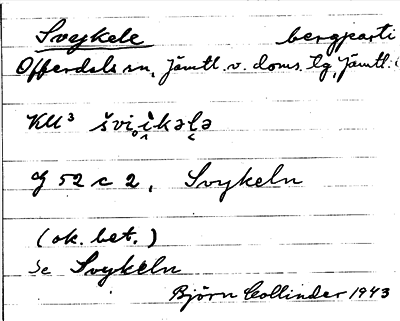 Svykele bergparti
Offerdals sn, Jämtl. v. doms. lg, Jämtl.
KU³ švi̥i̭kələ̬
G 52 c 2, Svykeln
(ok. bet.)
Se Svykeln
Björn Collinder 1943